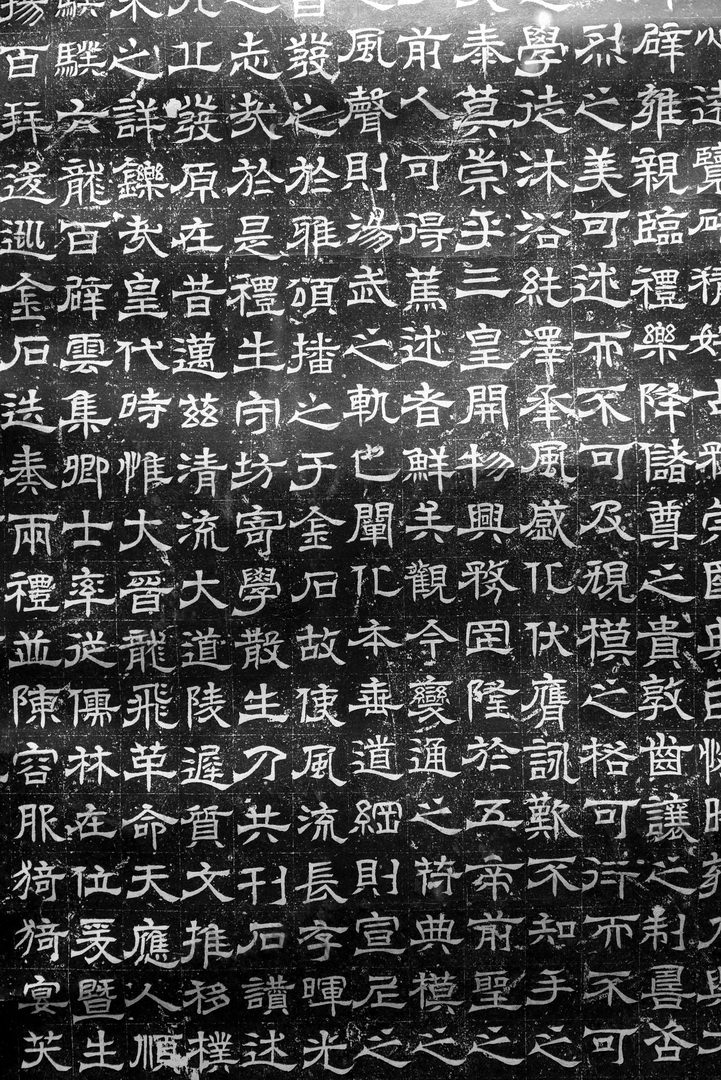 遠覽研精好古
辟雍親臨禮樂降儲尊之貴敦齒讓之制善否
烈之美可述而不可及規模之格可行而不可
學徒沐浴純澤承風感化伏膺詠歎不知手之
泰莫崇乎三皇開物興務罔隆於五帝前聖之
前人可得篤述者鮮矣觀今變通之符典模之
風聲則湯武之軌也闡化本垂道綱則宣尼之
發之於雅頌播之于金石故使風流長存暉光
志矣於是禮生守坊寄學散生乃共刊石讚述
北發原在昔邁茲清流大道陵遲質文推移樸
之詳鑠矣皇代時惟大晉龍飛革命天應人順
騏六龍百辟雲集卿士率從儒林在位爰曁生
百拜逡巡金石迭奏兩禮並陳容服猗猗宴笑